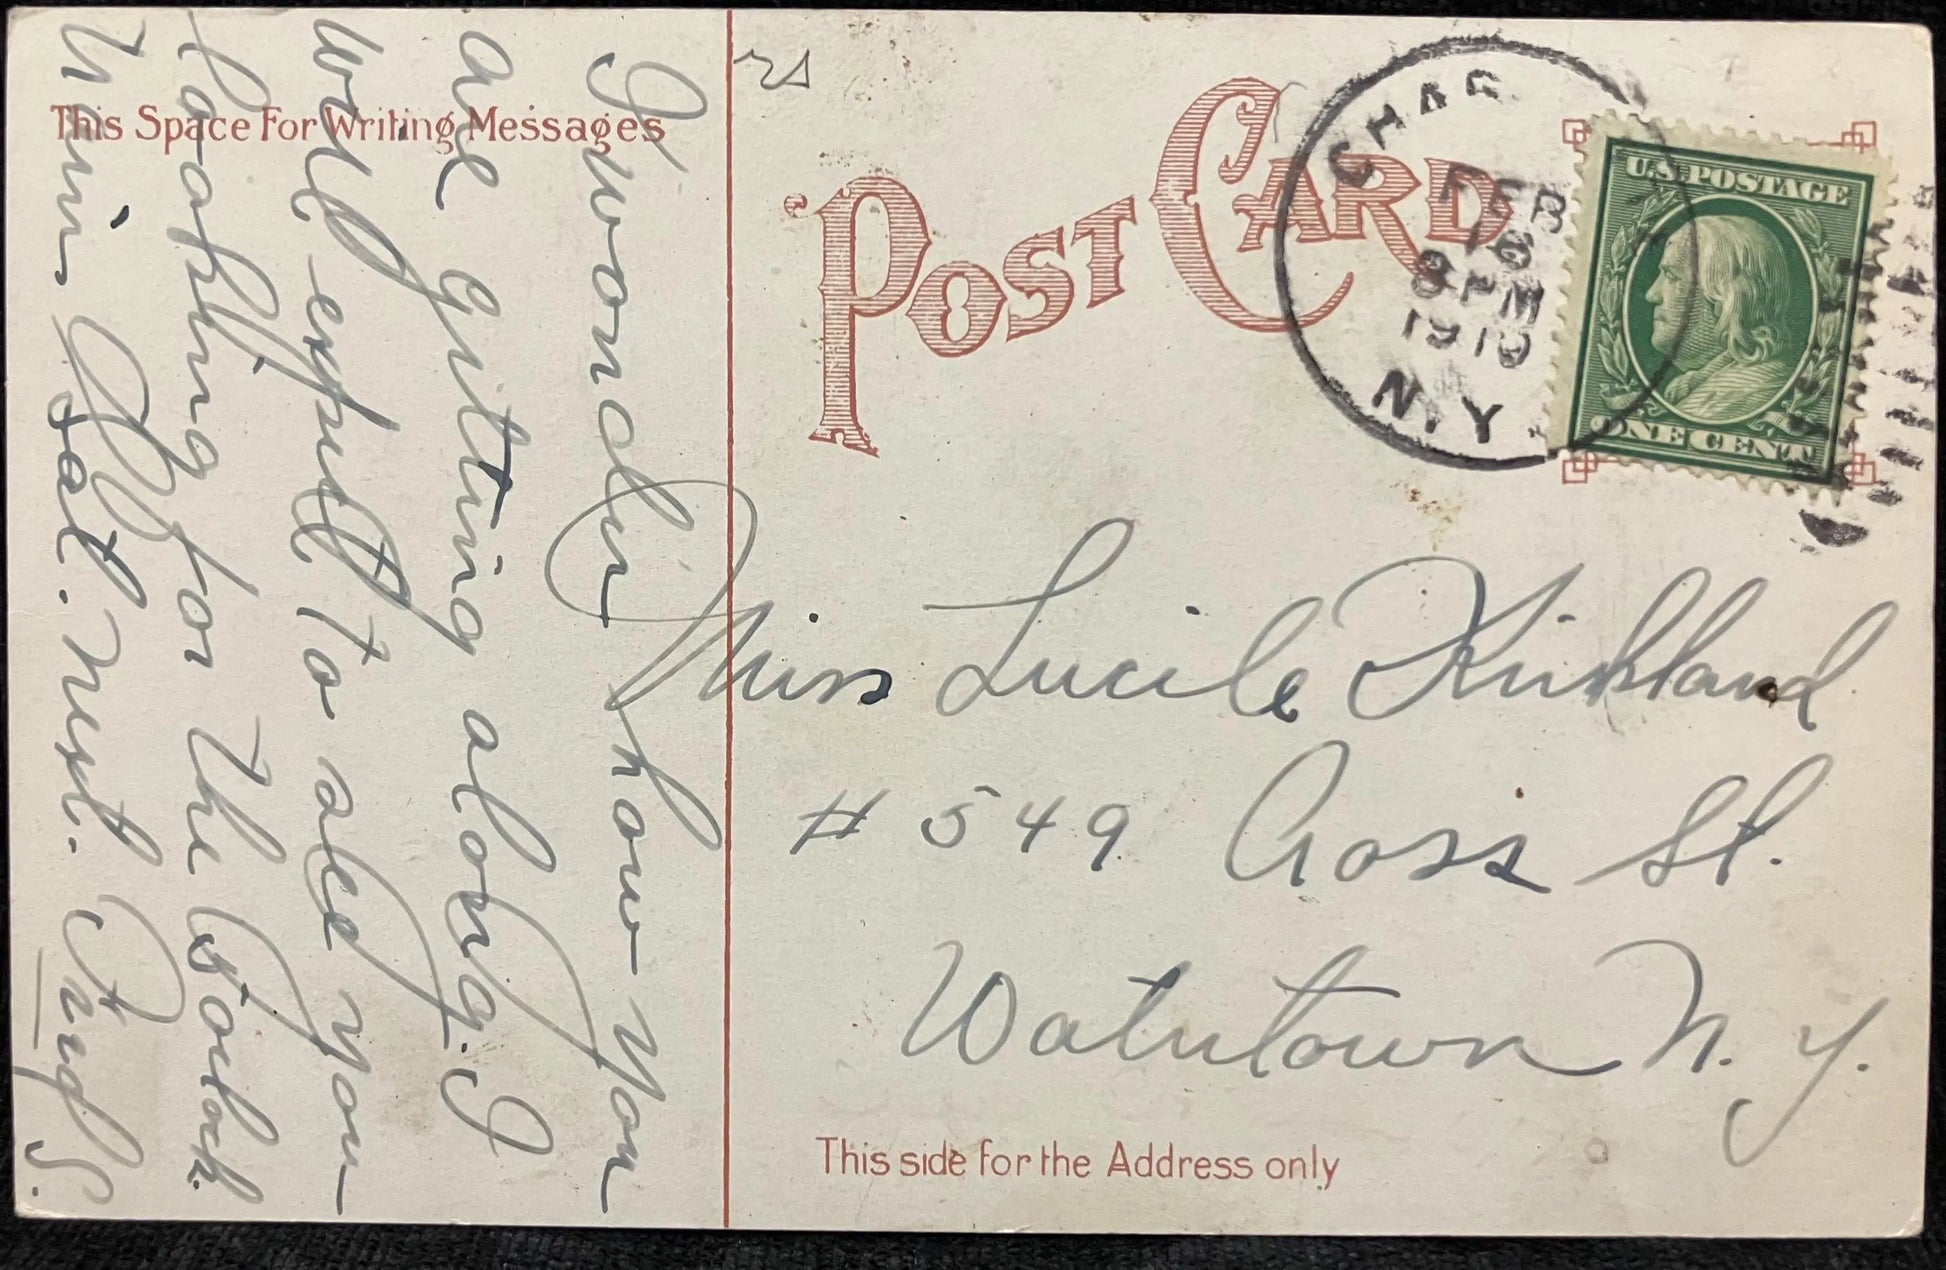 This Space For Writing Messages
POST CARD
FEB
8 PM
1910
N.Y.
U.S. POSTAGE
ONE CENT
I wonder how you
are getting along. I
will expect to see you
looking for the book.
Sat. next.
Miss Lucile Kirkland
# 549 Cross St.
Watertown N.Y.
This side for the Address only